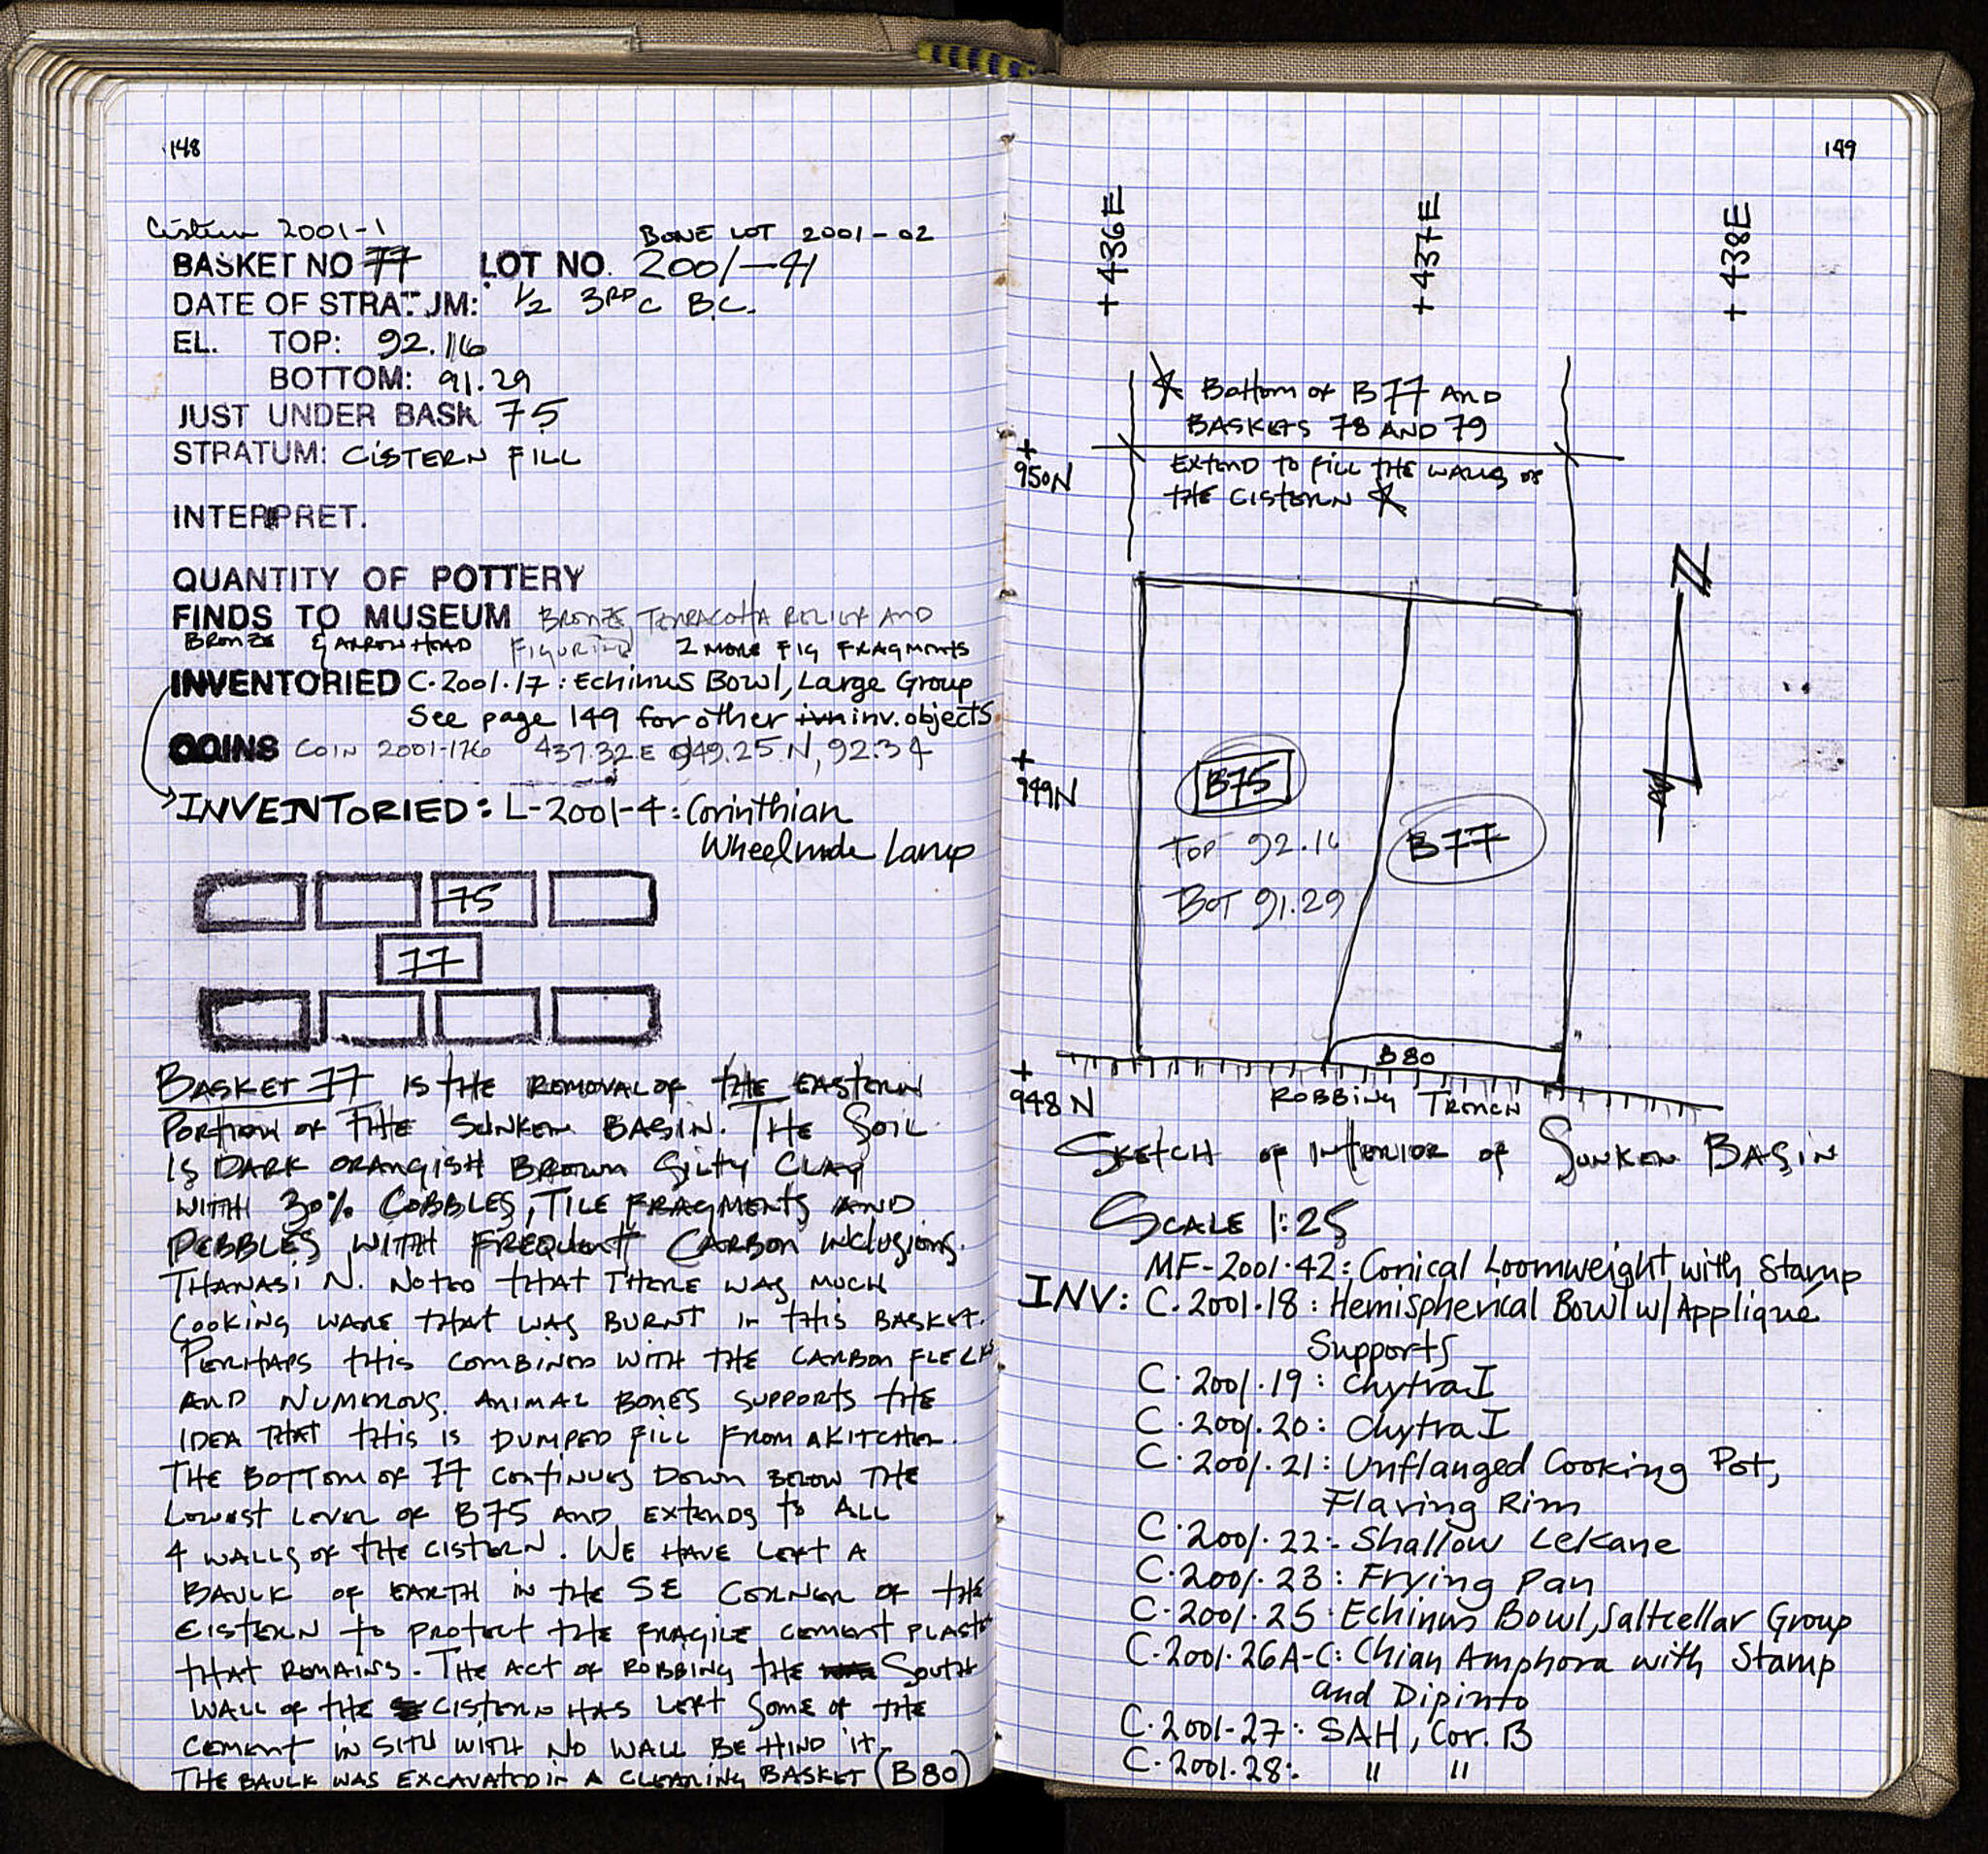 148
Cistern 2001-1
BONE LOT 2001-02
BASKET NO 77 LOT NO. 2001-41
DATE OF STRATUM: 1/2 3RD C B.C.
EL. TOP: 92.16
BOTTOM: 91.29
JUST UNDER BASK 75
STRATUM: CISTERN FILL
INTERPRET.
QUANTITY OF POTTERY
FINDS TO MUSEUM BRONZE, TERRACOTTA RELIEF AND
BRONZE ARROWHEAD FIGURINE 2 MORE FIG FRAGMENTS
INVENTORIED C.2001.17: Echinus Bowl, Large Group
See page 149 for other inv. objects
COINS COIN 2001-176 437.32E 949.25 N, 92.34
INVENTORIED: L-2001-4: Corinthian
Wheelmade Lamp
75
77
BASKET 77 IS THE REMOVAL OF THE EASTERN
PORTION OF THE SUNKEN BASIN. THE SOIL
IS DARK ORANGISH BROWN SILTY CLAY
WITH 30% COBBLES, TILE FRAGMENTS AND
PEBBLES WITH FREQUENT CARBON INCLUSIONS.
THANASI N. NOTED THAT THERE WAS MUCH
COOKING WARE THAT WAS BURNT IN THIS BASKET.
PERHAPS THIS COMBINED WITH THE CARBON FLECKS
AND NUMEROUS ANIMAL BONES SUPPORTS THE
IDEA THAT THIS IS DUMPED FILL FROM A KITCHEN.
THE BOTTOM OF 77 CONTINUES DOWN BELOW THE
LOWEST LEVEL OF B75 AND EXTENDS TO ALL
4 WALLS OF THE CISTERN. WE HAVE LEFT A
BAULK OF EARTH IN THE SE CORNER OF THE
CISTERN TO PROTECT THE FRAGILE CEMENT PLASTER
THAT REMAINS. THE ACT OF ROBBING THE SOUTH
WALL OF THE CISTERN HAS LEFT SOME OF THE
CEMENT IN SITU WITH NO WALL BEHIND IT.
THE BAULK WAS EXCAVATED IN A CLEANING BASKET (B80)
149
+436E
+437E
+438E
* Bottom of B77 AND
BASKETS 78 AND 79
EXTEND TO FILL THE WALLS OF
THE CISTERN *
+
950N
N
+
949N
B75
TOP 92.16
BOT 91.29
B77
B80
+
948N
ROBBING TRENCH
SKETCH OF INTERIOR OF SUNKEN BASIN
SCALE 1:25
MF-2001.42: Conical Loomweight with Stamp
INV: C.2001.18: Hemispherical Bowl w/ Appliqué
Supports
C.2001.19: Chytra I
C.2001.20: Chytra I
C.2001.21: Unflanged Cooking Pot,
Flaring Rim
C.2001.22: Shallow Lekane
C.2001.23: Frying Pan
C.2001.25: Echinus Bowl, Saltcellar Group
C.2001.26A-C: Chian Amphora with Stamp
and Dipinto
C.2001-27: SAH, Cor. B
C.2001.28: " "